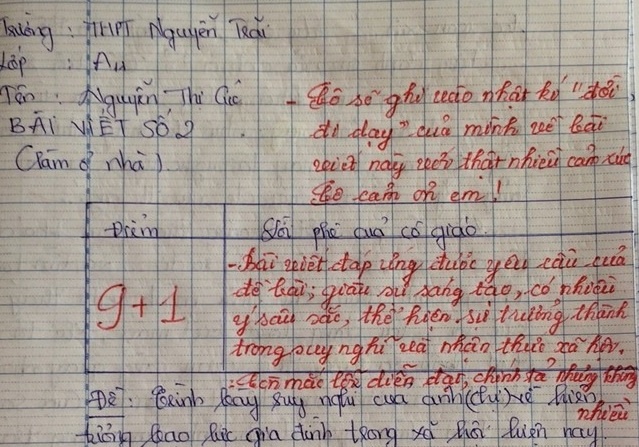 Trường : THPT Nguyễn Trãi
Lớp : A11
Tên : Nguyễn Thị Cúc
BÀI VIẾT SỐ 2
(Làm ở nhà).
- Cô sẽ ghi vào nhật ký "đời
đi dạy" của mình về bài
viết này với thật nhiều cảm xúc
Cô cảm ơn em!
Điểm
Lời phê của cô giáo
9+1
- Bài viết đáp ứng được yêu cầu của
đề bài; giàu sự sáng tạo, có nhiều
ý sâu sắc, thể hiện sự trưởng thành
trong suy nghĩ và nhận thức xã hội.
- Còn mắc lỗi diễn đạt, chính tả nhưng không
nhiều
Đề: Trình bày suy nghĩ của anh (chị) về hiện
tượng bạo lực gia đình trong xã hội hiện nay.